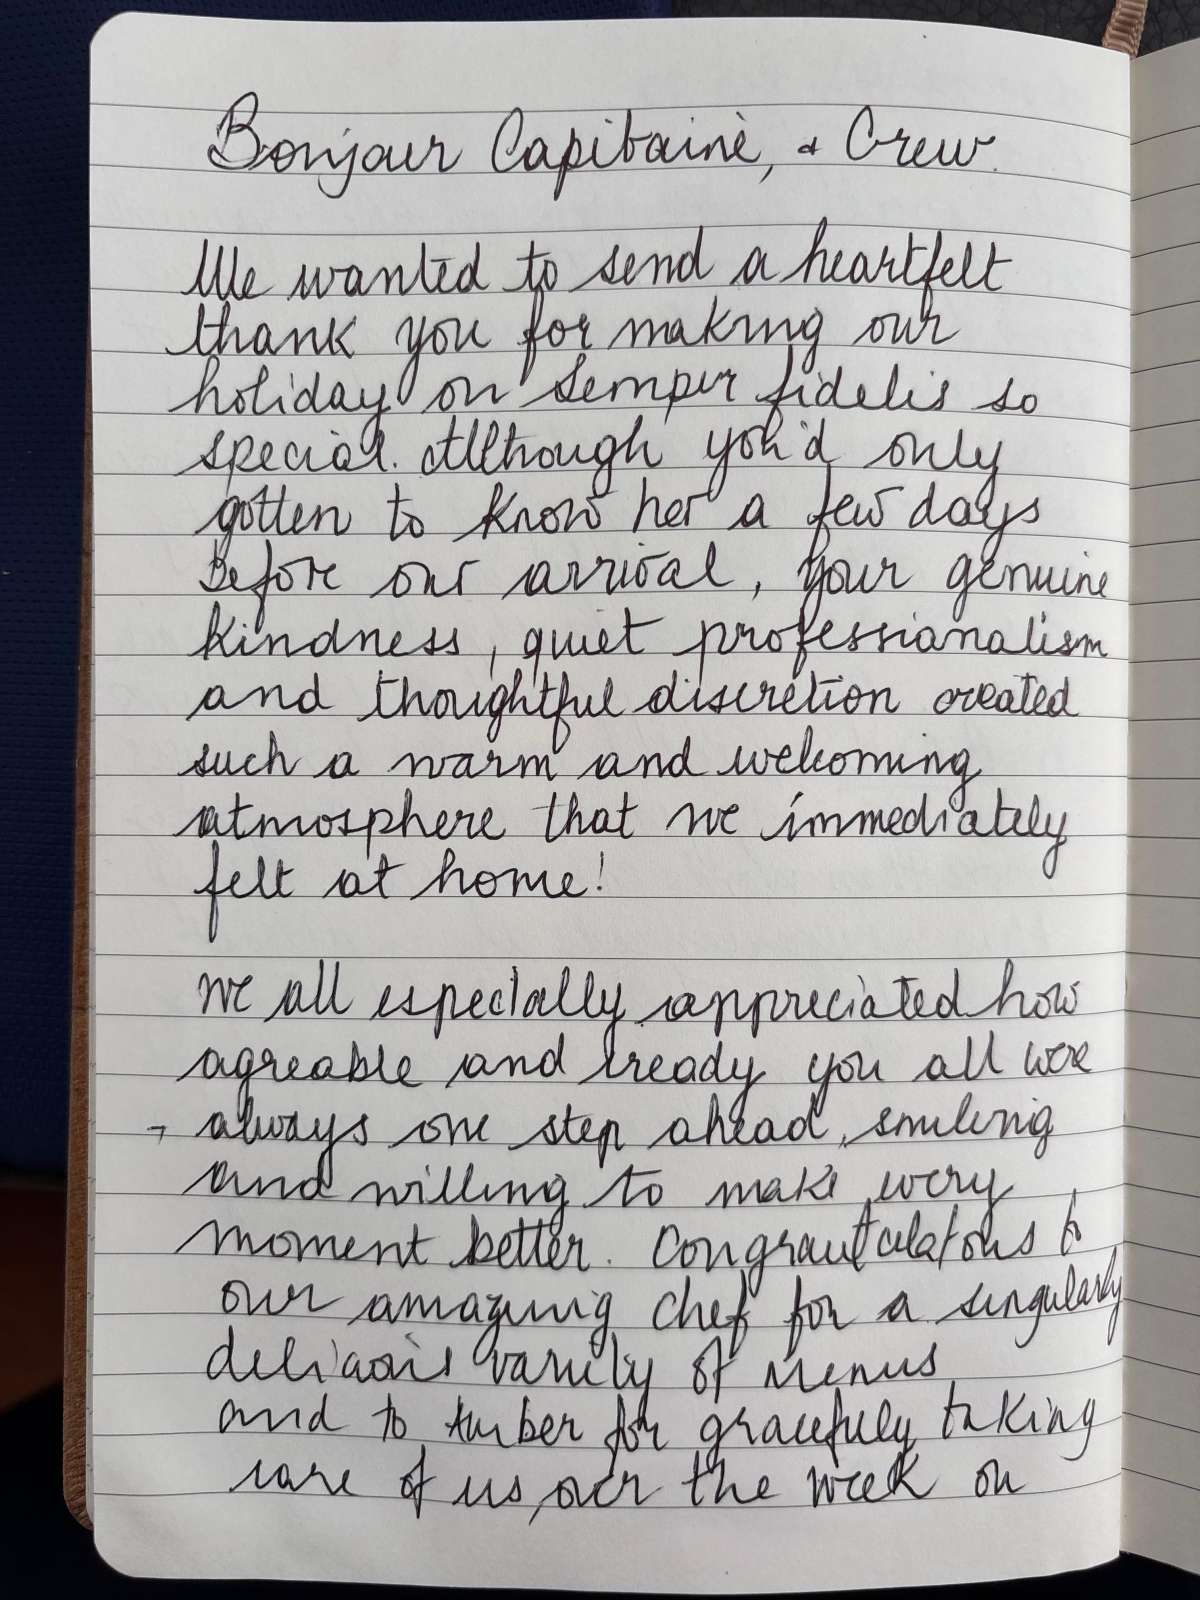 Bonjour Capitaine, & Crew.
We wanted to send a heartfelt
thank you for making our
holiday on Semper fidelis so
special. Although you'd only
gotten to know her a few days
Before our arrival, your genuine
kindness, quiet professionalism
and thoughtful discretion created
such a warm and welcoming
atmosphere that we immediately
felt at home!
We all especially appreciated how
agreable and ready you all were
→ always one step ahead, smiling
and willing to make every
moment better. Congratulations to
our amazing chef for a singularly
delicious variety of menus
and to Amber for gracefully taking
care of us, over the week on